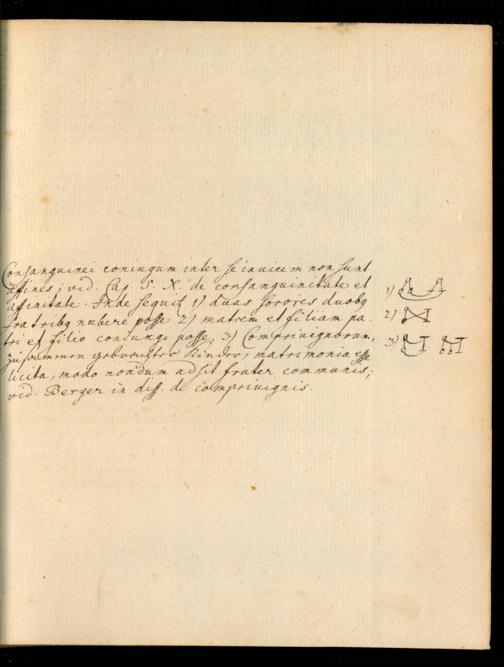 Consanguinei coniugum inter se invicem non sunt
affines; vid. Cap. 5. X. de consanguinitate et
affinitate. Inde sequit 1) duas sorores duobq
fratribq nubere posse. 2) matrem et filiam pa-
tri et filio coniungi posse, 3) Comprivignorum,
zusammen gebrachter Kinder, matrimonia esse
licita, modo nondum adsit frater communis;
vid. Berger in diss. de comprivignis.
1)
2)
3)